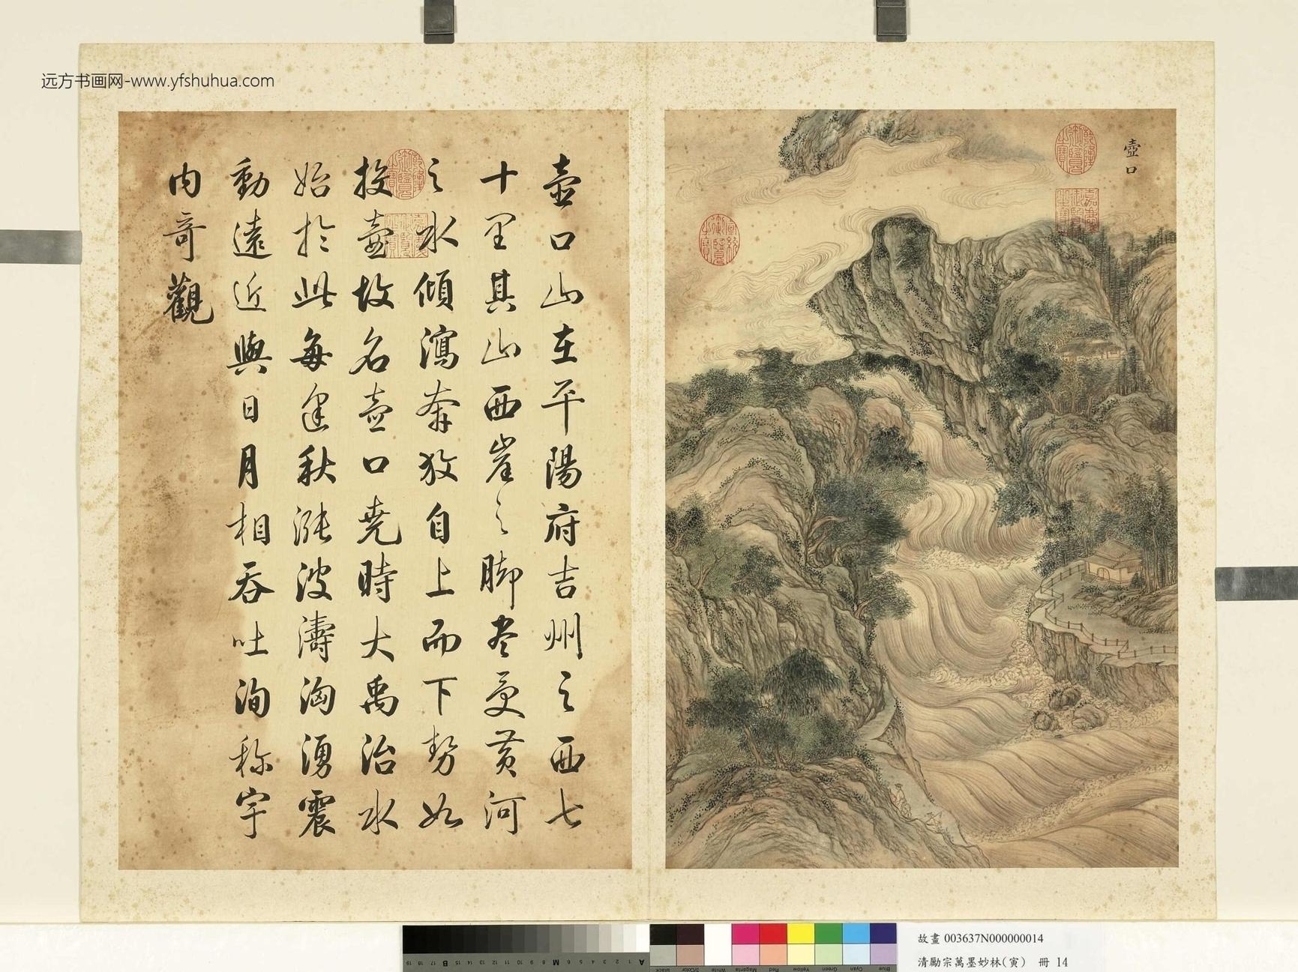 远方书画网-www.yfshuhua.com
壺口
壺口山在平陽府吉州之西七
十里其山西崖之脚盡受黄河
之水傾瀉奔放自上而下勢如
投壺故名壺口堯時大禹治水
始於此每逢秋漲波濤洶湧震
動遠近與日月相吞吐洵称宇
内奇觀
故畫 003637N000000014
清勵宗萬墨妙林(寅) 冊 14